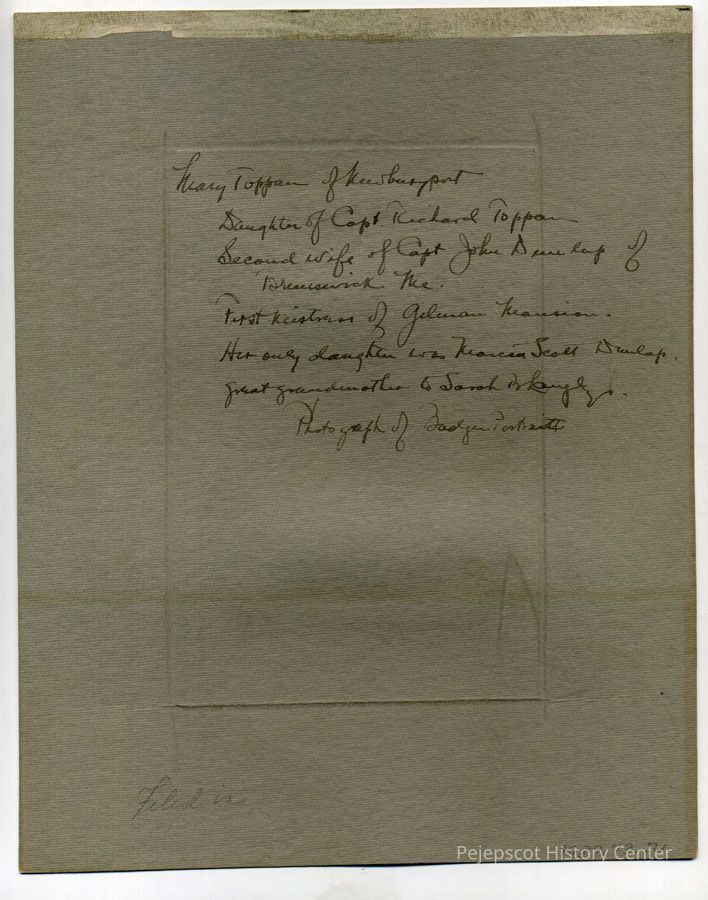 Mary Toppan of Newburyport
Daughter of Capt Richard Toppan
Second wife of Capt John Dunlap of
Brunswick Me.
First mistress of Gilman Mansion.
Her only daughter was Marcia Scott Dunlap.
great grandmother to Sarah
Photograph of Badger Portrait
Filed in
Pejepscot History Center